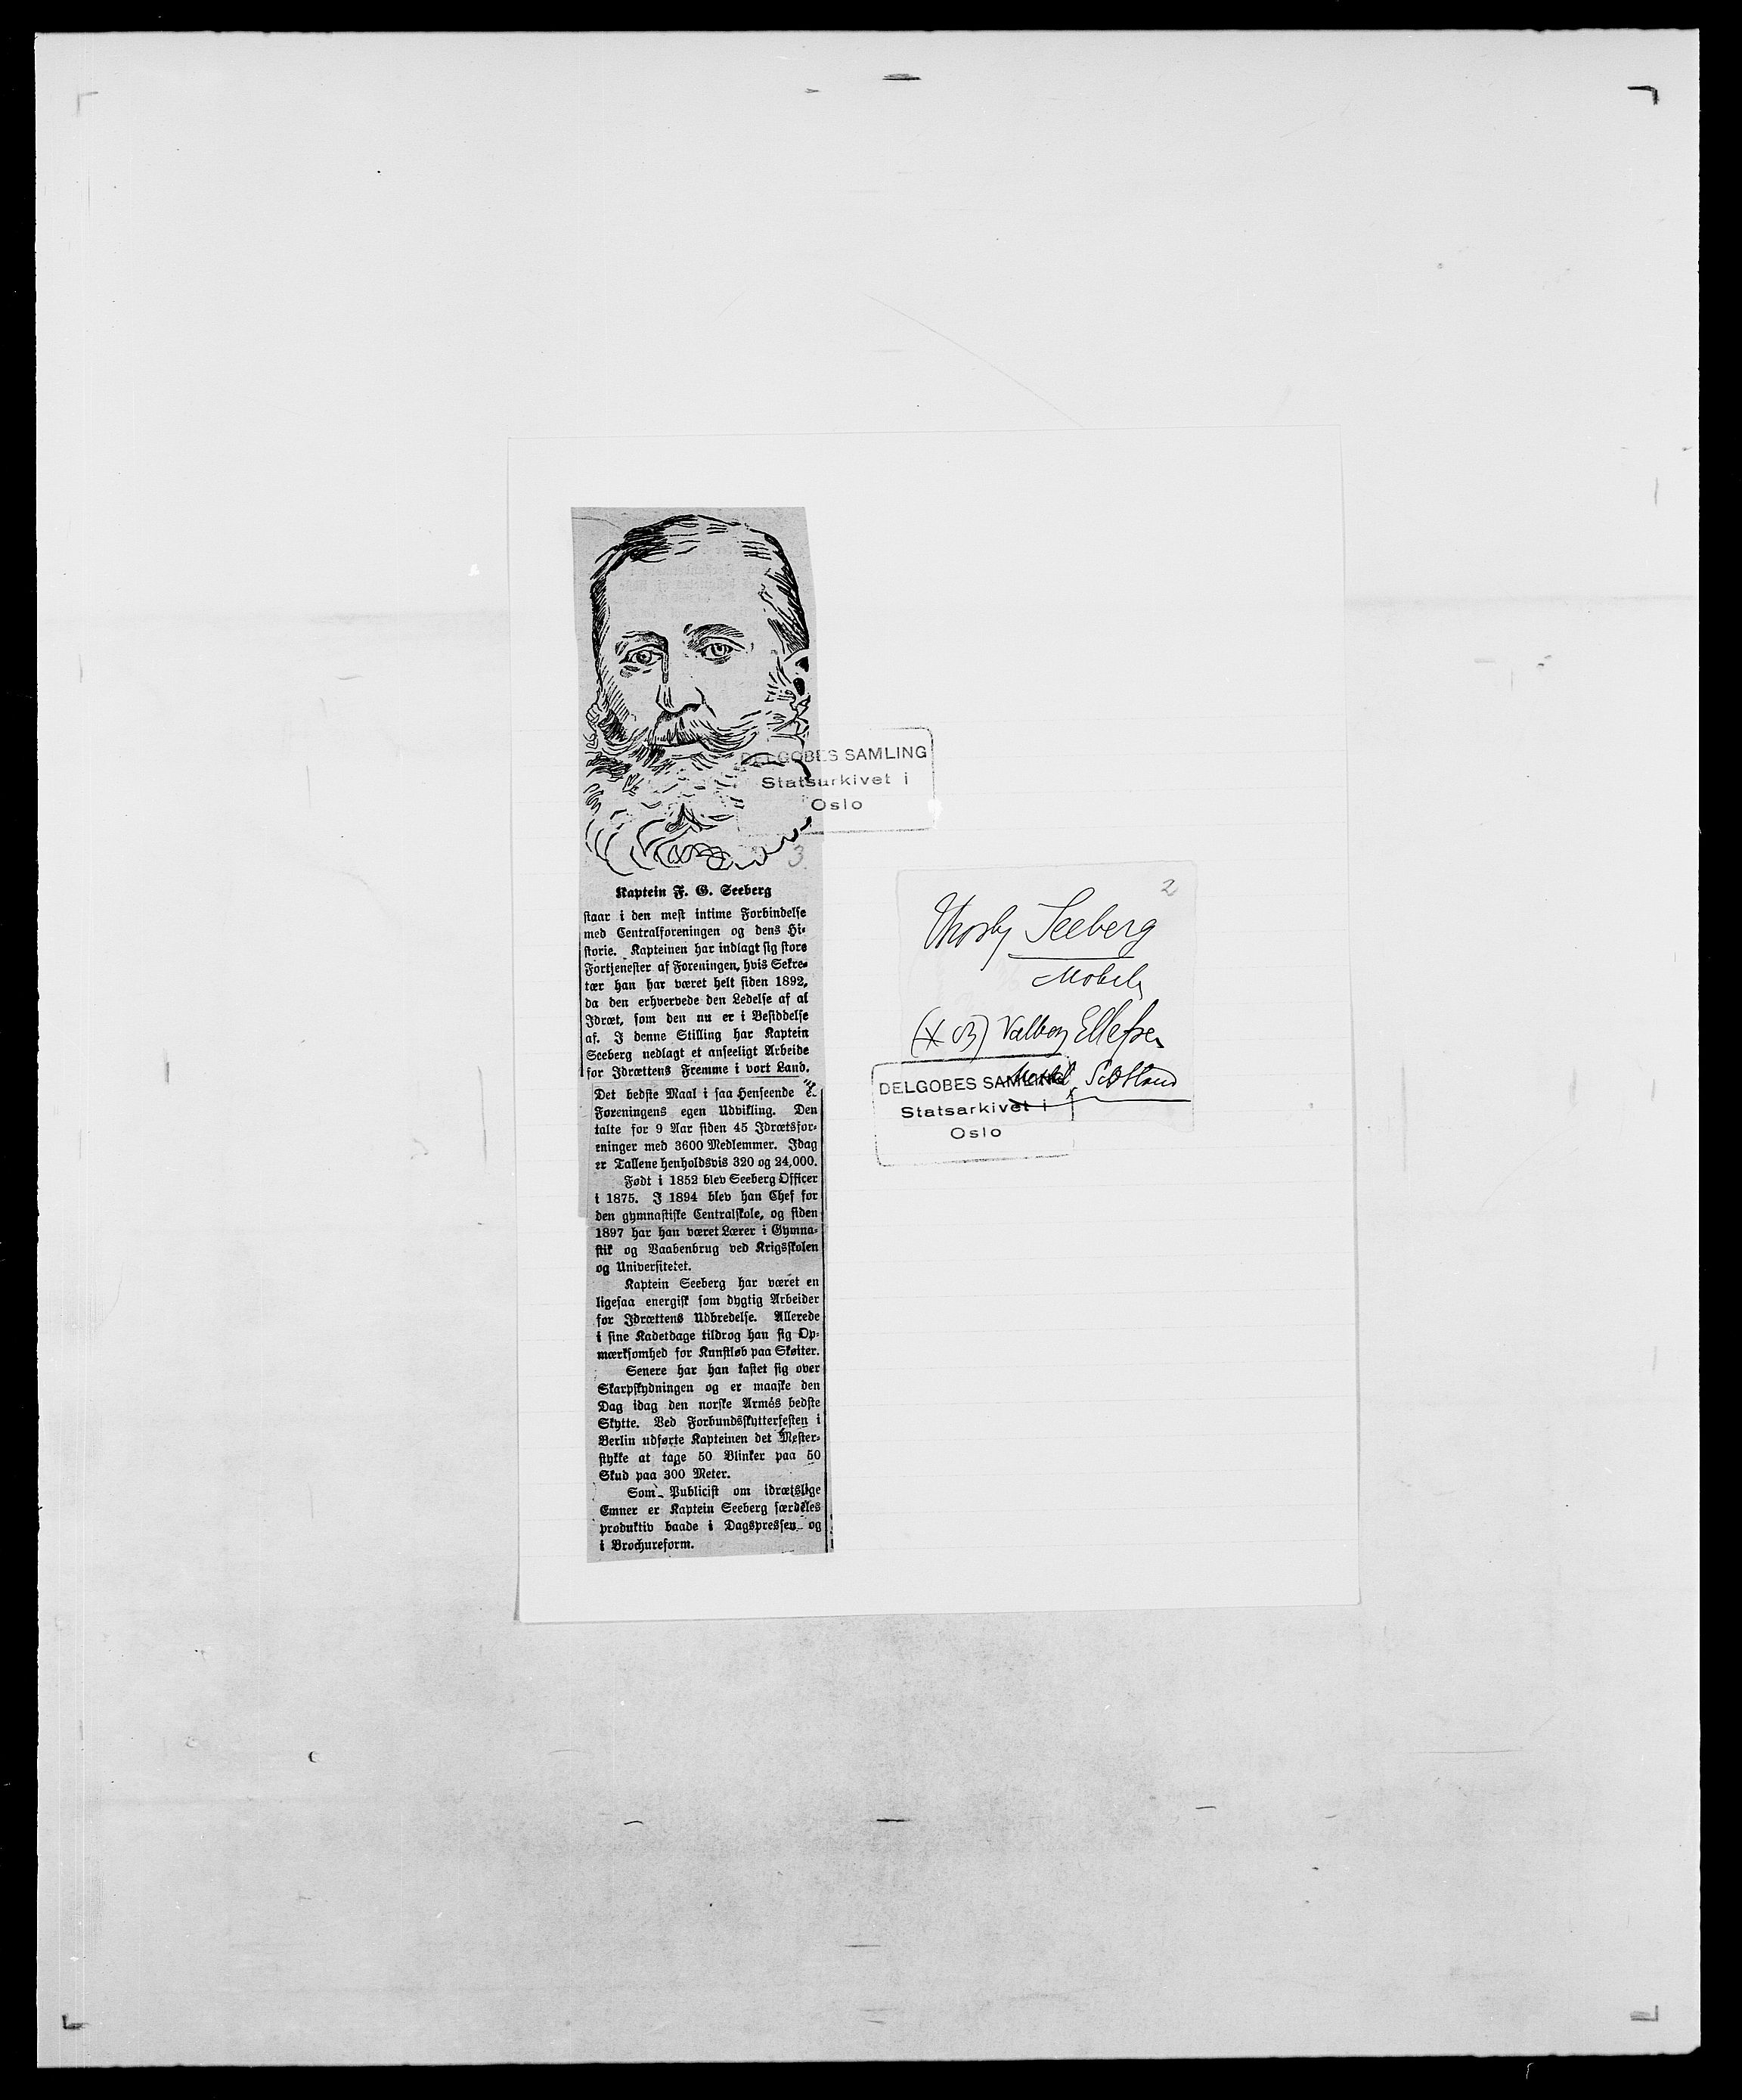 DELGOBES SAMLING
Statsarkivet i
Oslo
3
Kaptein F. G. Seeberg
staar i den mest intime Forbindelse
med Centralforeningen og dens Hi-
storie. Kapteinen har indlagt sig store
Fortjenester af Foreningen, hvis Sekre-
tær han har været helt siden 1892,
da den erhvervede den Ledelse af al
Idræt, som den nu er i Besiddelse
af. I denne Stilling har Kaptein
Seeberg nedlagt et anseeligt Arbeide
for Idrættens Fremme i vort Land.
Det bedste Maal i saa Henseende er
Foreningens egen Udvikling. Den
talte for 9 Aar siden 45 Idrætsfor-
eninger med 3600 Medlemmer. Idag
er Tallene henholdsvis 320 og 24,000.
Født i 1852 blev Seeberg Officer
i 1875. I 1894 blev han Chef for
den gymnastiske Centralskole, og siden
1897 har han været Lærer i Gymna-
stik og Vaabenbrug ved Krigsskolen
og Universitetet.
Kaptein Seeberg har været en
ligesaa energisk som dygtig Arbeider
for Idrættens Udbredelse. Allerede
i sine Kadetdage tildrog han sig Op-
mærksomhed for Kunstløb paa Skøiter.
Senere har han kastet sig over
Skarpskydningen og er maaske den
Dag idag den norske Armés bedste
Skytte. Ved Forbundsskytterfesten i
Berlin udførte Kapteinen det Mester-
stykke at tage 50 Blinker paa 50
Skud paa 300 Meter.
Som Publicist om idrætslige
Emner er Kaptein Seeberg særdeles
produktiv baade i Dagspressen og
i Brochureform.
2
Seeberg
Valborg Ellefsen
DELGOBES SAMLING
Statsarkivet i
Oslo